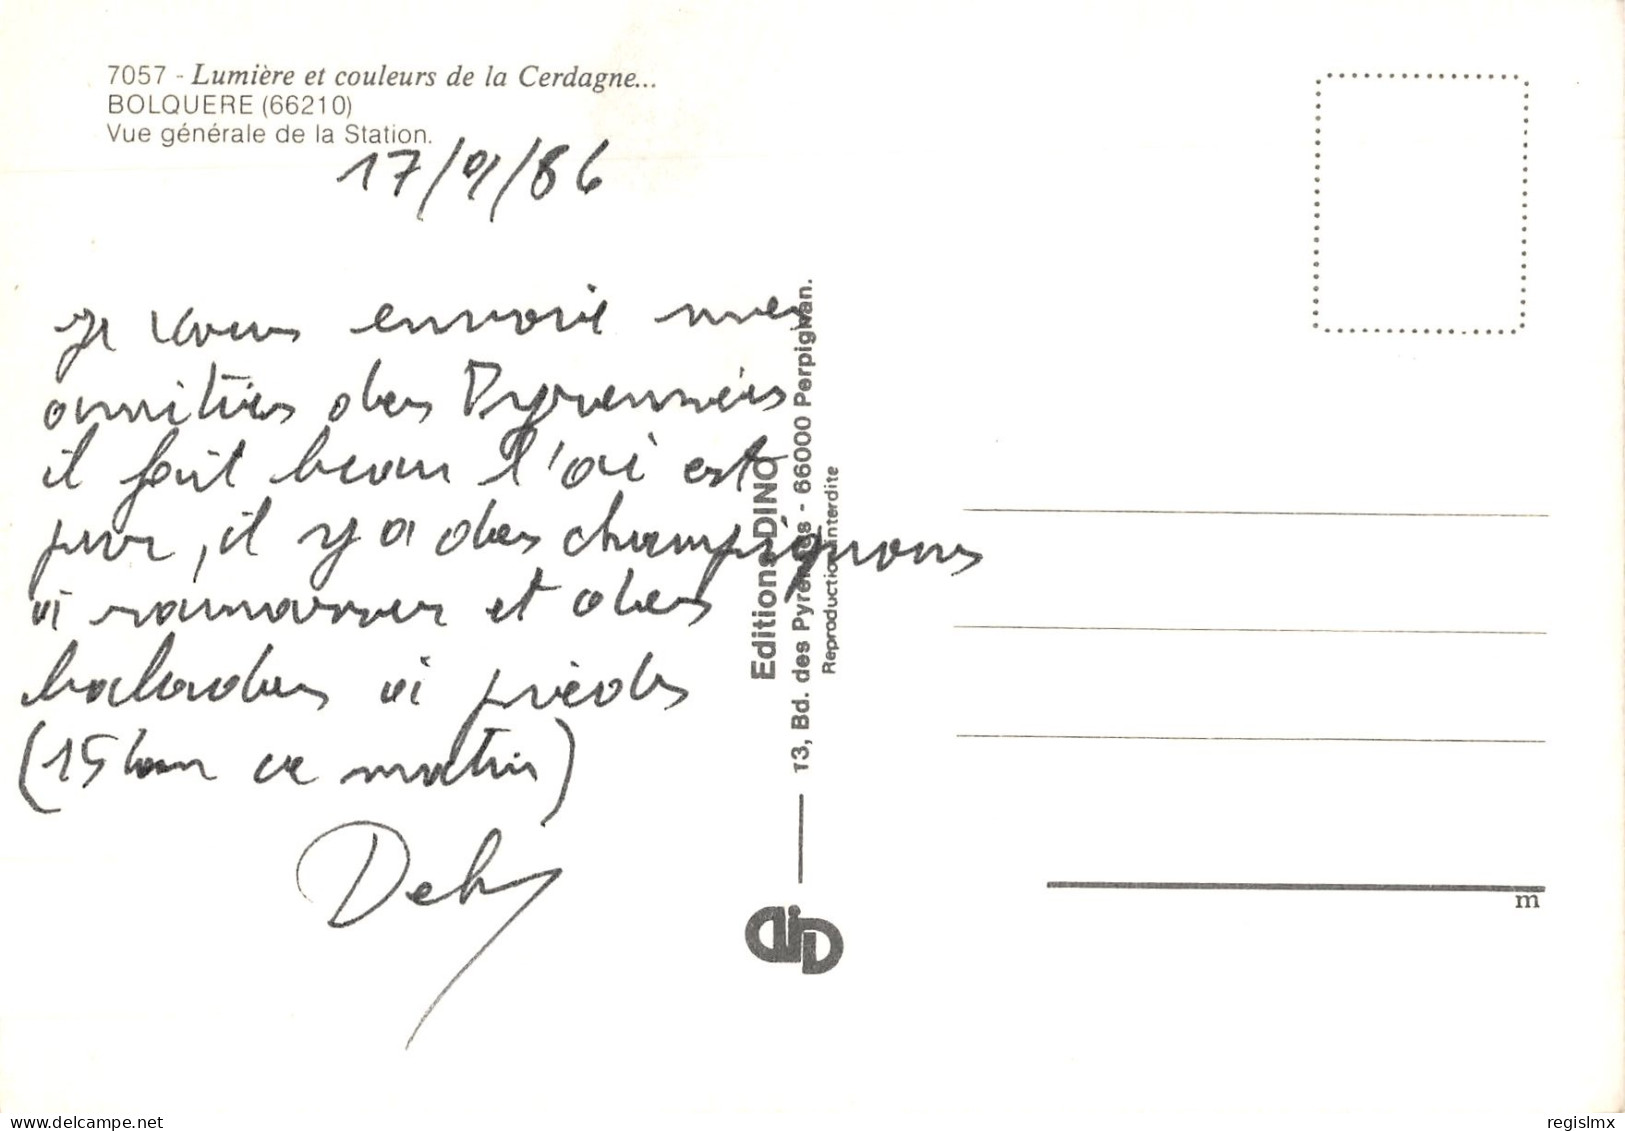 7057 - Lumière et couleurs de la Cerdagne...
BOLQUERE (66210)
Vue générale de la Station.
17/9/86
Je vous envoie mes
amitiés des Pyrennées
il fait beau l'ai est
pur, il y a des champignons
à ramasser et des
balades à pieds
(15 km ce matin)
Editions DINO
13, Bd. des Pyrénées - 66000 Perpignan.
Reproduction interdite
m
regislmx